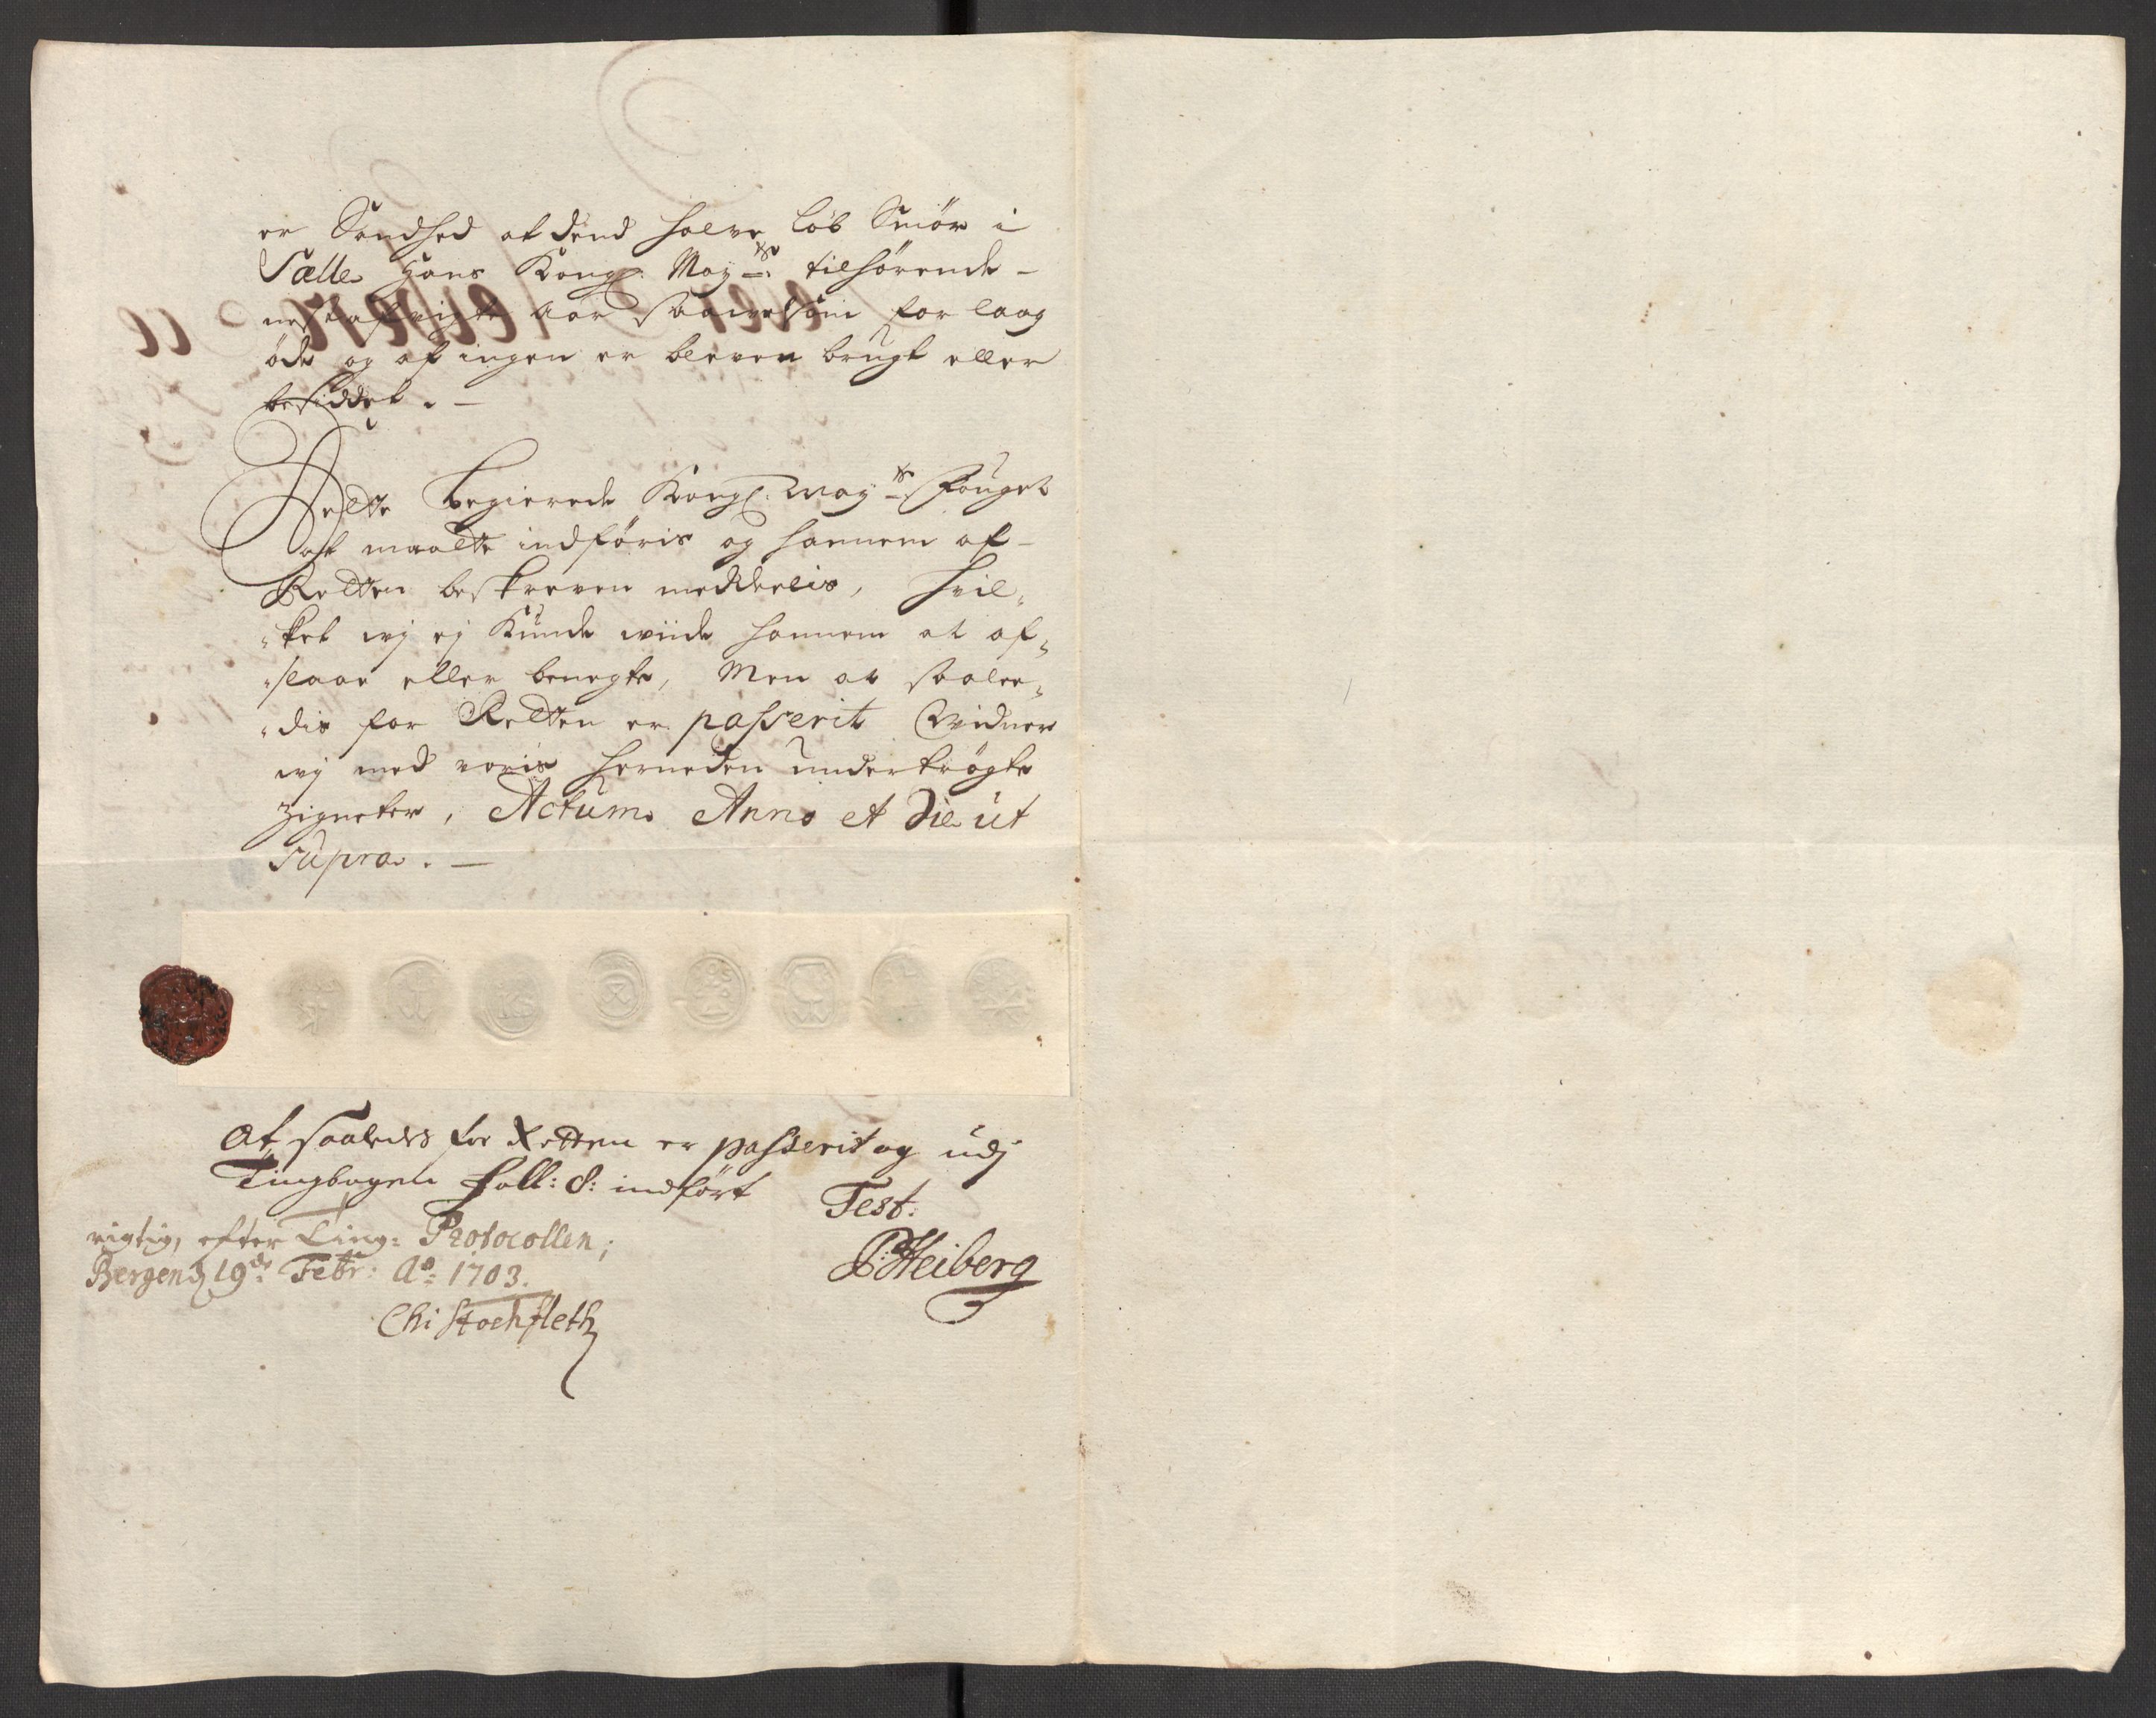 er Sandhed at dend halve Løb Smør i
Sælle Hans Kongl: May:ts tilhørende –
nest afvigte Aar saavelsom for laag
øde og af ingen er bleven brugt eller
besiddet. –
Dette begierede Kongl: May:ts Fouget
at maatte indføris og hannem af
Retten beskreven meddeelis, hvil„
„ket wj ej kunde wiide hannem at af„
„slaae eller benegte, Men at saalee„
„dis for Retten er passerit Widner
wj med voris herneden undertrögte
Zigneter, Actum Anno et Die ut
Supra. –
At saaledes for Retten er passerit og udj
Tingbogen foll: 8: indført
Test:
P: Heiberg
rigtig, efter Ting- Protocollen;
Bergen d 19de Febr: Ao: 1703.
Chr Stochfleth